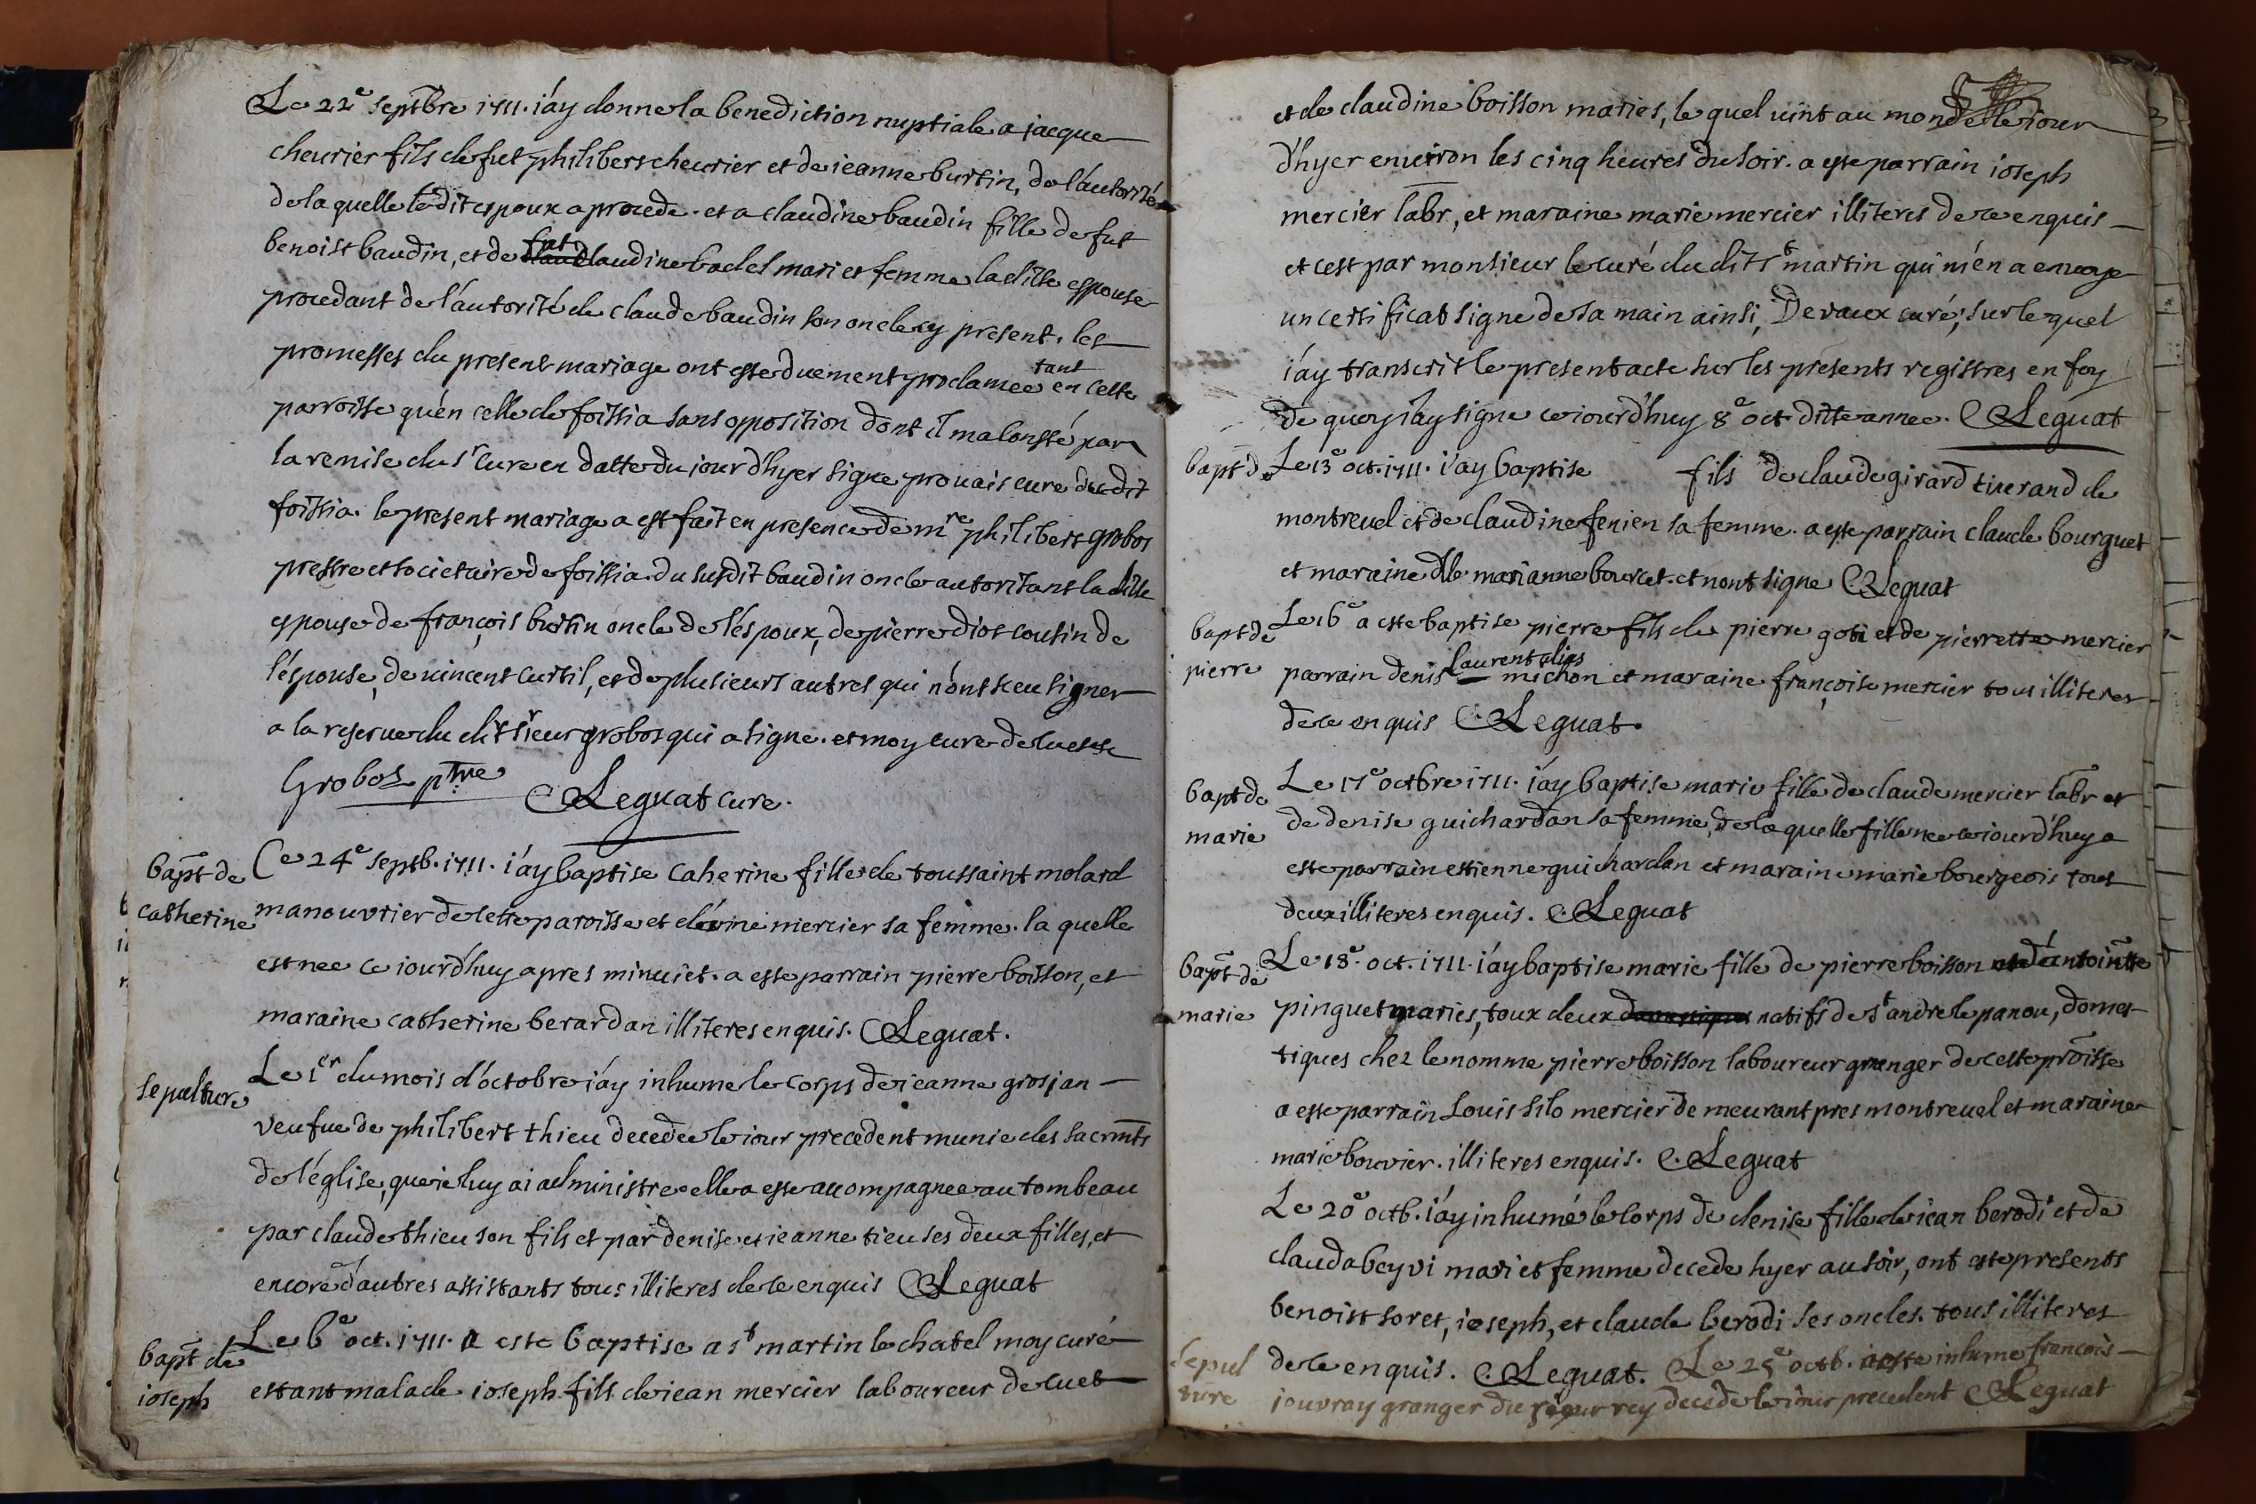 Le 22e septbre 1711. i'ay donne la benediction nuptiale a jacque
cheurier fils de fut philibert cheurier et de ieanne burtin, de l'autorité
de la quelle le dit espoux a procede. et a claudine baudin fille de fut
benoist baudin, et de fut claudine badel mari et femme la ditte espouse
procedant de l'autorité de claude baudin son oncle cy present. les
promesses du present mariage ont esté duement proclamee tant en cette
parroisse qu'en celle de foissia sans opposition dont il ma consté par
la remise du sr cure en datte du jour d'hyer signe prouais cure du dit
foissia. le present mariage a est fait en presence de mre philibert grobos
prestre et societaire de foissia. du susdit baudin oncle autorisant la ditte
espouse de françois burtin oncle de l'espoux, de pierre diot cousin de
l'espouse, de vincent curtil, et de plusieurs autres qui n'ont sceu signer
a la reserve du dit sieur grobos qui a signe. et moy cure de cuet
Grobos ptre
C Leguat cure.
bapt de
catherine
Ce 24e septb. 1711. i'ay baptise Caherine fille de toussaint molard
manouvrier de cette paroisse et de mercier sa femme. la quelle
est nee ce iourd'huy apres minuict. a este parrain pierre boisson, et
maraine catherine berardan illiteres enquis. C Leguat.
sepulture
Le 1er du mois d'octobre j'ay inhume le corps de ieanne grosjan
veufue de philibert thieu decedee le iour precedent munie des sacrmts
de l'église, que ie luy ai administre elle a este accompagnee au tombeau
par claude thieu son fils et par denise et ieanne tieu ses deux filles, et
encore d'autres assistants tous illiteres de ce enquis C Leguat
bapt de
ioseph
Le 6e oct. 1711. a este baptise a st martin le chatel moy curé
estant malade ioseph fils de iean mercier laboureur de cuet
et de claudine boisson maries, le quel vint au monde le iour
d'hyer environ les cinq heures du soir. a este parrain ioseph
mercier labr, et maraine marie mercier illiteres de ce enquis
et cest par monsieur le curé du dit st martin qui m'en a envoye
un certificat signe de sa main ainsi, Devaux curé, sur le quel
i'ay transcrit le present acte sur les présents registres en foy
de quoy i'ay signe ce iourd'huy 8e oct. ditte annee. C Leguat
bapt d
Le 13e oct. 1711. i'ay baptise fils de claude girard tixerand de
montrevel et de claudine fenien sa femme. a este parrain claude bourguet
et maraine dlle marianne bourcet. et n'ont signe C Leguat
bapt de
pierre
Le 16e a este baptise pierre fils de pierre goti et de pierrette mercier
parrain denis laurent alias michon et maraine françoise mercier tous illiteres
de ce enquis C Leguat.
bapt de
marie
Le 17e octbre 1711. i'ay baptise marie fille de claude mercier labr et
de denise guichardan sa femme, de la quelle fille nee ce iourd'huy a
este parrain estienne guichardan et maraine marie bourgeois tout
deux illiteres enquis. C. Leguat
bapt de
marie
Le 18e. oct. 1711. i'ay baptise marie fille de pierre boisson et d'antoinette
pinguet maries, toux deux natifs de st andre le panou, domes-
tiques chez le nomme pierre boisson laboureur granger de ceste proisse
a este parrain Louis silo mercier de meurant pres montrevel et maraine
marie bouvier. illiteres enquis. C. Leguat
Le 20e octb. i'ay inhumé le corps de denise fille de iean berodi et de
clauda beyvi mari et femme decede hyer au soir, ont este presents
benoist soret, ioseph, et claude berodi ses oncles. tous illiteres
de ce enquis. C. Leguat. Le 25e octb. a este inhume francois
sepul
ture
jouvray granger du rey decede le iour precedent C Leguat